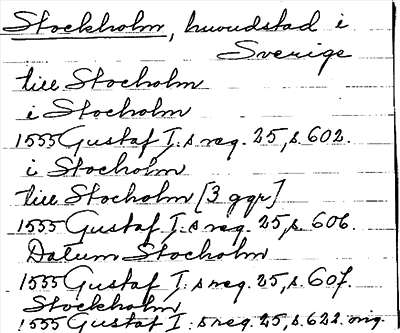 Stockholm, huvudstad i
Sverige
till Stocholm
i Stocholm
1555 Gustaf I:s reg. 25, s. 602.
i Stocholm
till Stocholm [3 ggr]
1555 Gustaf I:s reg. 25, s. 606.
Datum Stocholm
1555 Gustaf I:s reg. 25, s. 607.
Stockholm
1555 Gustaf I:s reg. 25, s. 622 orig.